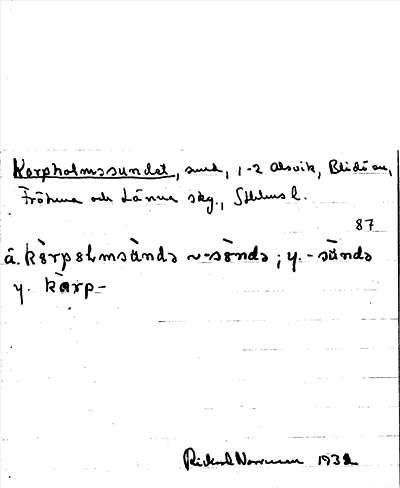 Korpholmssundet, sund, 1-2 Alsvik, Blidö sn,
Frötuna och Länna skg., Sthlms l.
87
ä. kòrpɵɫmsùndə ~ -sòndə ; y. -sùndə
y. kàrp-
Rickard 1932